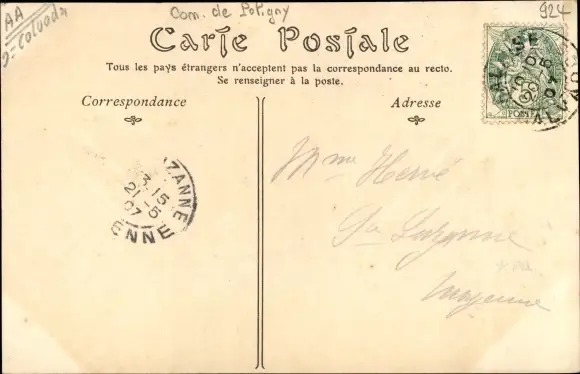 AA
Com. de Potigny
924
Carte Postale
Tous les pays étrangers n'acceptent pas la correspondance au recto.
Se renseigner à la poste.
Correspondance
Adresse
POSTES
Mme Hervé
Mayenne
ZANNE
3-15
21-5
07
ENNE